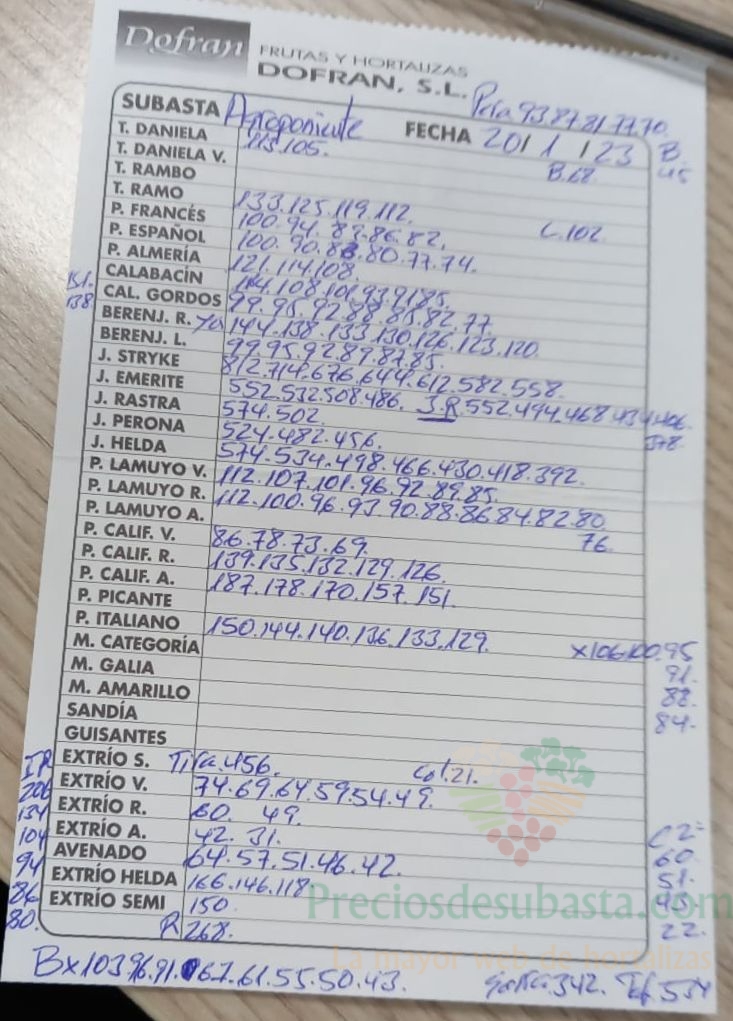 Dofran
FRUTAS Y HORTALIZAS
DOFRAN, S.L.
93.87.81.77.70.
SUBASTA Agroponiente FECHA 20/1/23 B.
T. DANIELA 113.105. 45
T. DANIELA V. B.68
T. RAMBO
T. RAMO 133.125.119.112.
P. FRANCÉS 100.94.89.86.82. C.102
P. ESPAÑOL 100.90.83.80.77.74.
P. ALMERÍA 121.114.108.
151. CALABACÍN 114.108.101.93.91.85.
138 CAL. GORDOS 99.95.92.88.85.82.77
BERENJ. R. 144.138.133.130.126.123.120.
BERENJ. L. 99.95.92.89.87.85.
J. STRYKE 812.714.676.644.612.582.558.
J. EMERITE 552.532.508.486. J.R 552.494.468.434.406.
J. RASTRA 574.502. 378.
J. PERONA 524.482.456.
J. HELDA 574.534.498.466.430.418.392.
P. LAMUYO V. 112.107.101.96.92.89.85.
P. LAMUYO R. 112.100.96.93.90.88.86.84.82.80.
P. LAMUYO A. 76.
P. CALIF. V. 86.78.73.69.
P. CALIF. R. 139.135.132.129.126.
P. CALIF. A. 187.178.170.157.151.
P. PICANTE
P. ITALIANO 150.144.140.136.133.129. x106.100.95
M. CATEGORÍA 91.
M. GALIA 88.
M. AMARILLO 84.
SANDÍA
GUISANTES
EXTRÍO S. Tira.456. Col.21.
206 EXTRÍO V. 74.69.64.59.54.49.
134 EXTRÍO R. 60. 49.
104 EXTRÍO A. 42.31. C2ª
94 AVENADO 64.57.51.46.42. 60
86 EXTRÍO HELDA 166.146.118. 51.
80. EXTRÍO SEMI 150. 43.
R 268. 22.
Preciosdesubasta.com
La mayor web de hortalizas
Bx103.96.91. 67.61.55.50.43. 342. 534